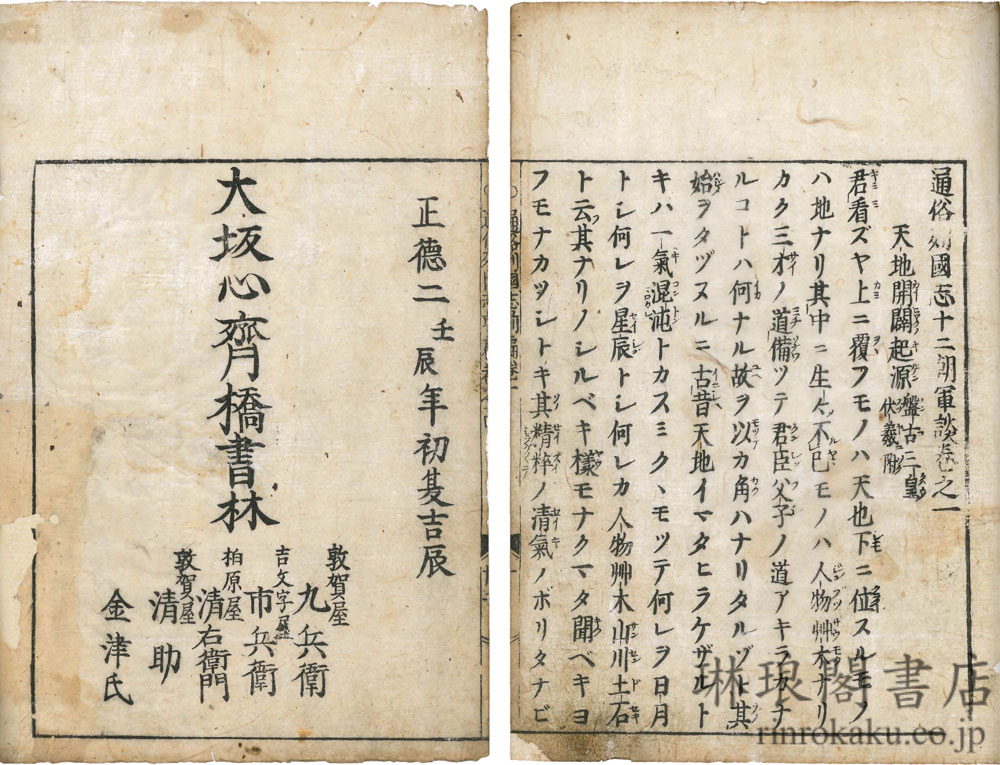 通俗列國志十二朝軍談卷之一
天地開闢起源盤古三皇
伏羲附
君看ズヤ上ニ覆フモノハ天也下ニ位スルモノ
ハ地ナリ其中ニ生〆不已モノハ人物艸木ナリ
カク三才ノ道備ツテ君臣父子ノ道アキラカナ
ルコトハ何ナル故ヲ以カ角ハナリタルゾト其
始ヲタヅヌルニ古昔天地イマタヒラケザルト
キハ一氣混沌トカスミク、モツテ何レヲ日月
トシ何レヲ星辰トシ何レカ人物艸木山川土石
ト云其ナリノシルベキ樣モナクマタ聞ベキヨ
フモナカツシトキ其精粹ノ清氣ノボリタナビ
正德二壬辰年初夏吉辰
大坂心齊橋書林
敦賀屋九兵衛
吉文字屋市兵衛
柏原屋清右衛門
敦賀屋清助
金津氏
琳琅閣書店
rinrokaku.co.jp